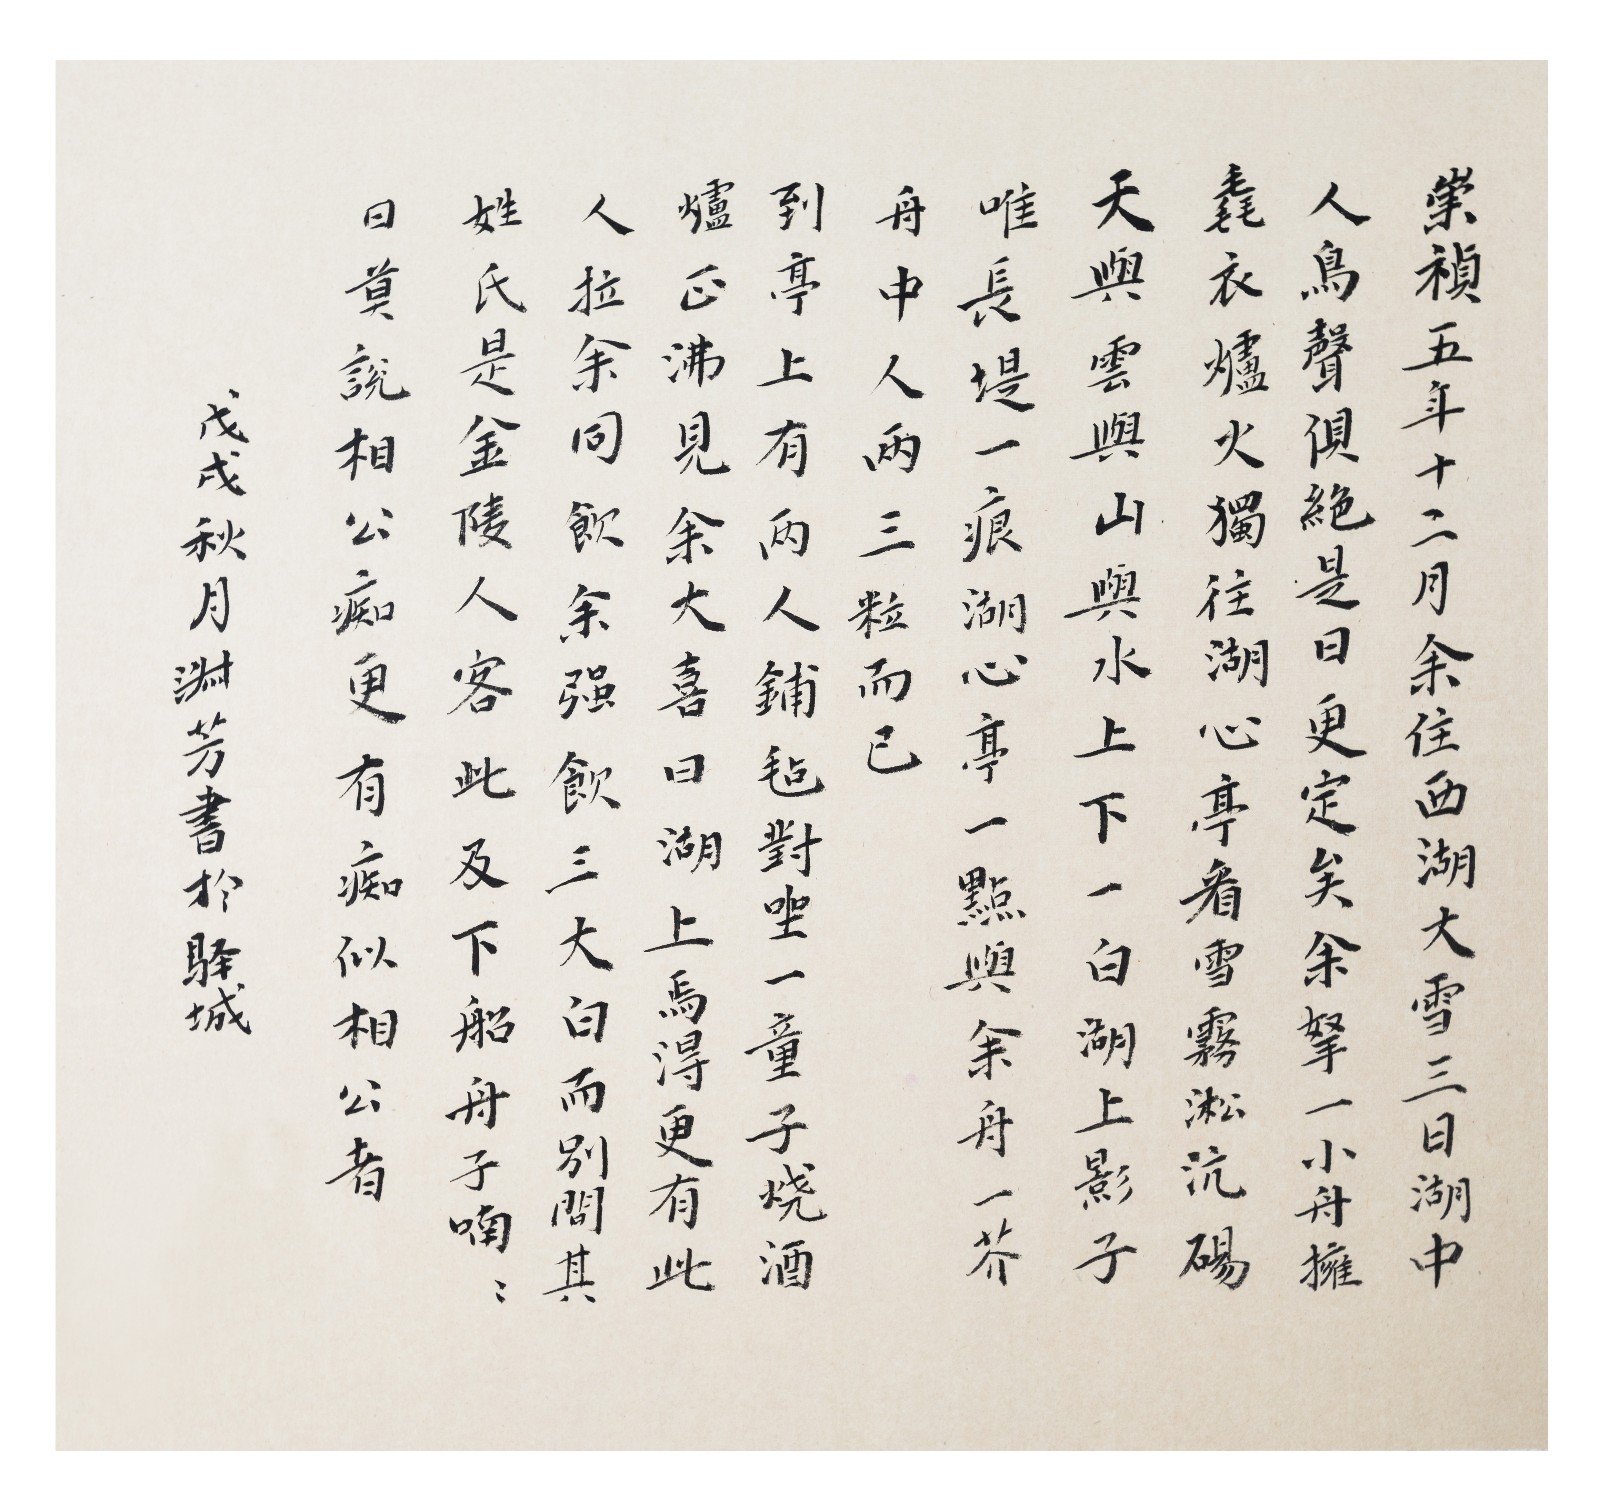 崇禎五年十二月余住西湖大雪三日湖中
人鳥聲俱絶是日更定矣余拏一小舟擁
毳衣爐火獨往湖心亭看雪霧淞沆碭
天與雲與山與水上下一白湖上影子
唯長堤一痕湖心亭一點與余舟一芥
舟中人兩三粒而已
到亭上有兩人鋪毡對坐一童子燒酒
爐正沸見余大喜曰湖上焉得更有此
人拉余同飲余强飲三大白而別問其
姓氏是金陵人客此及下船舟子喃〻
曰莫說相公痴更有痴似相公者
戊戌秋月淑芳書於驿城